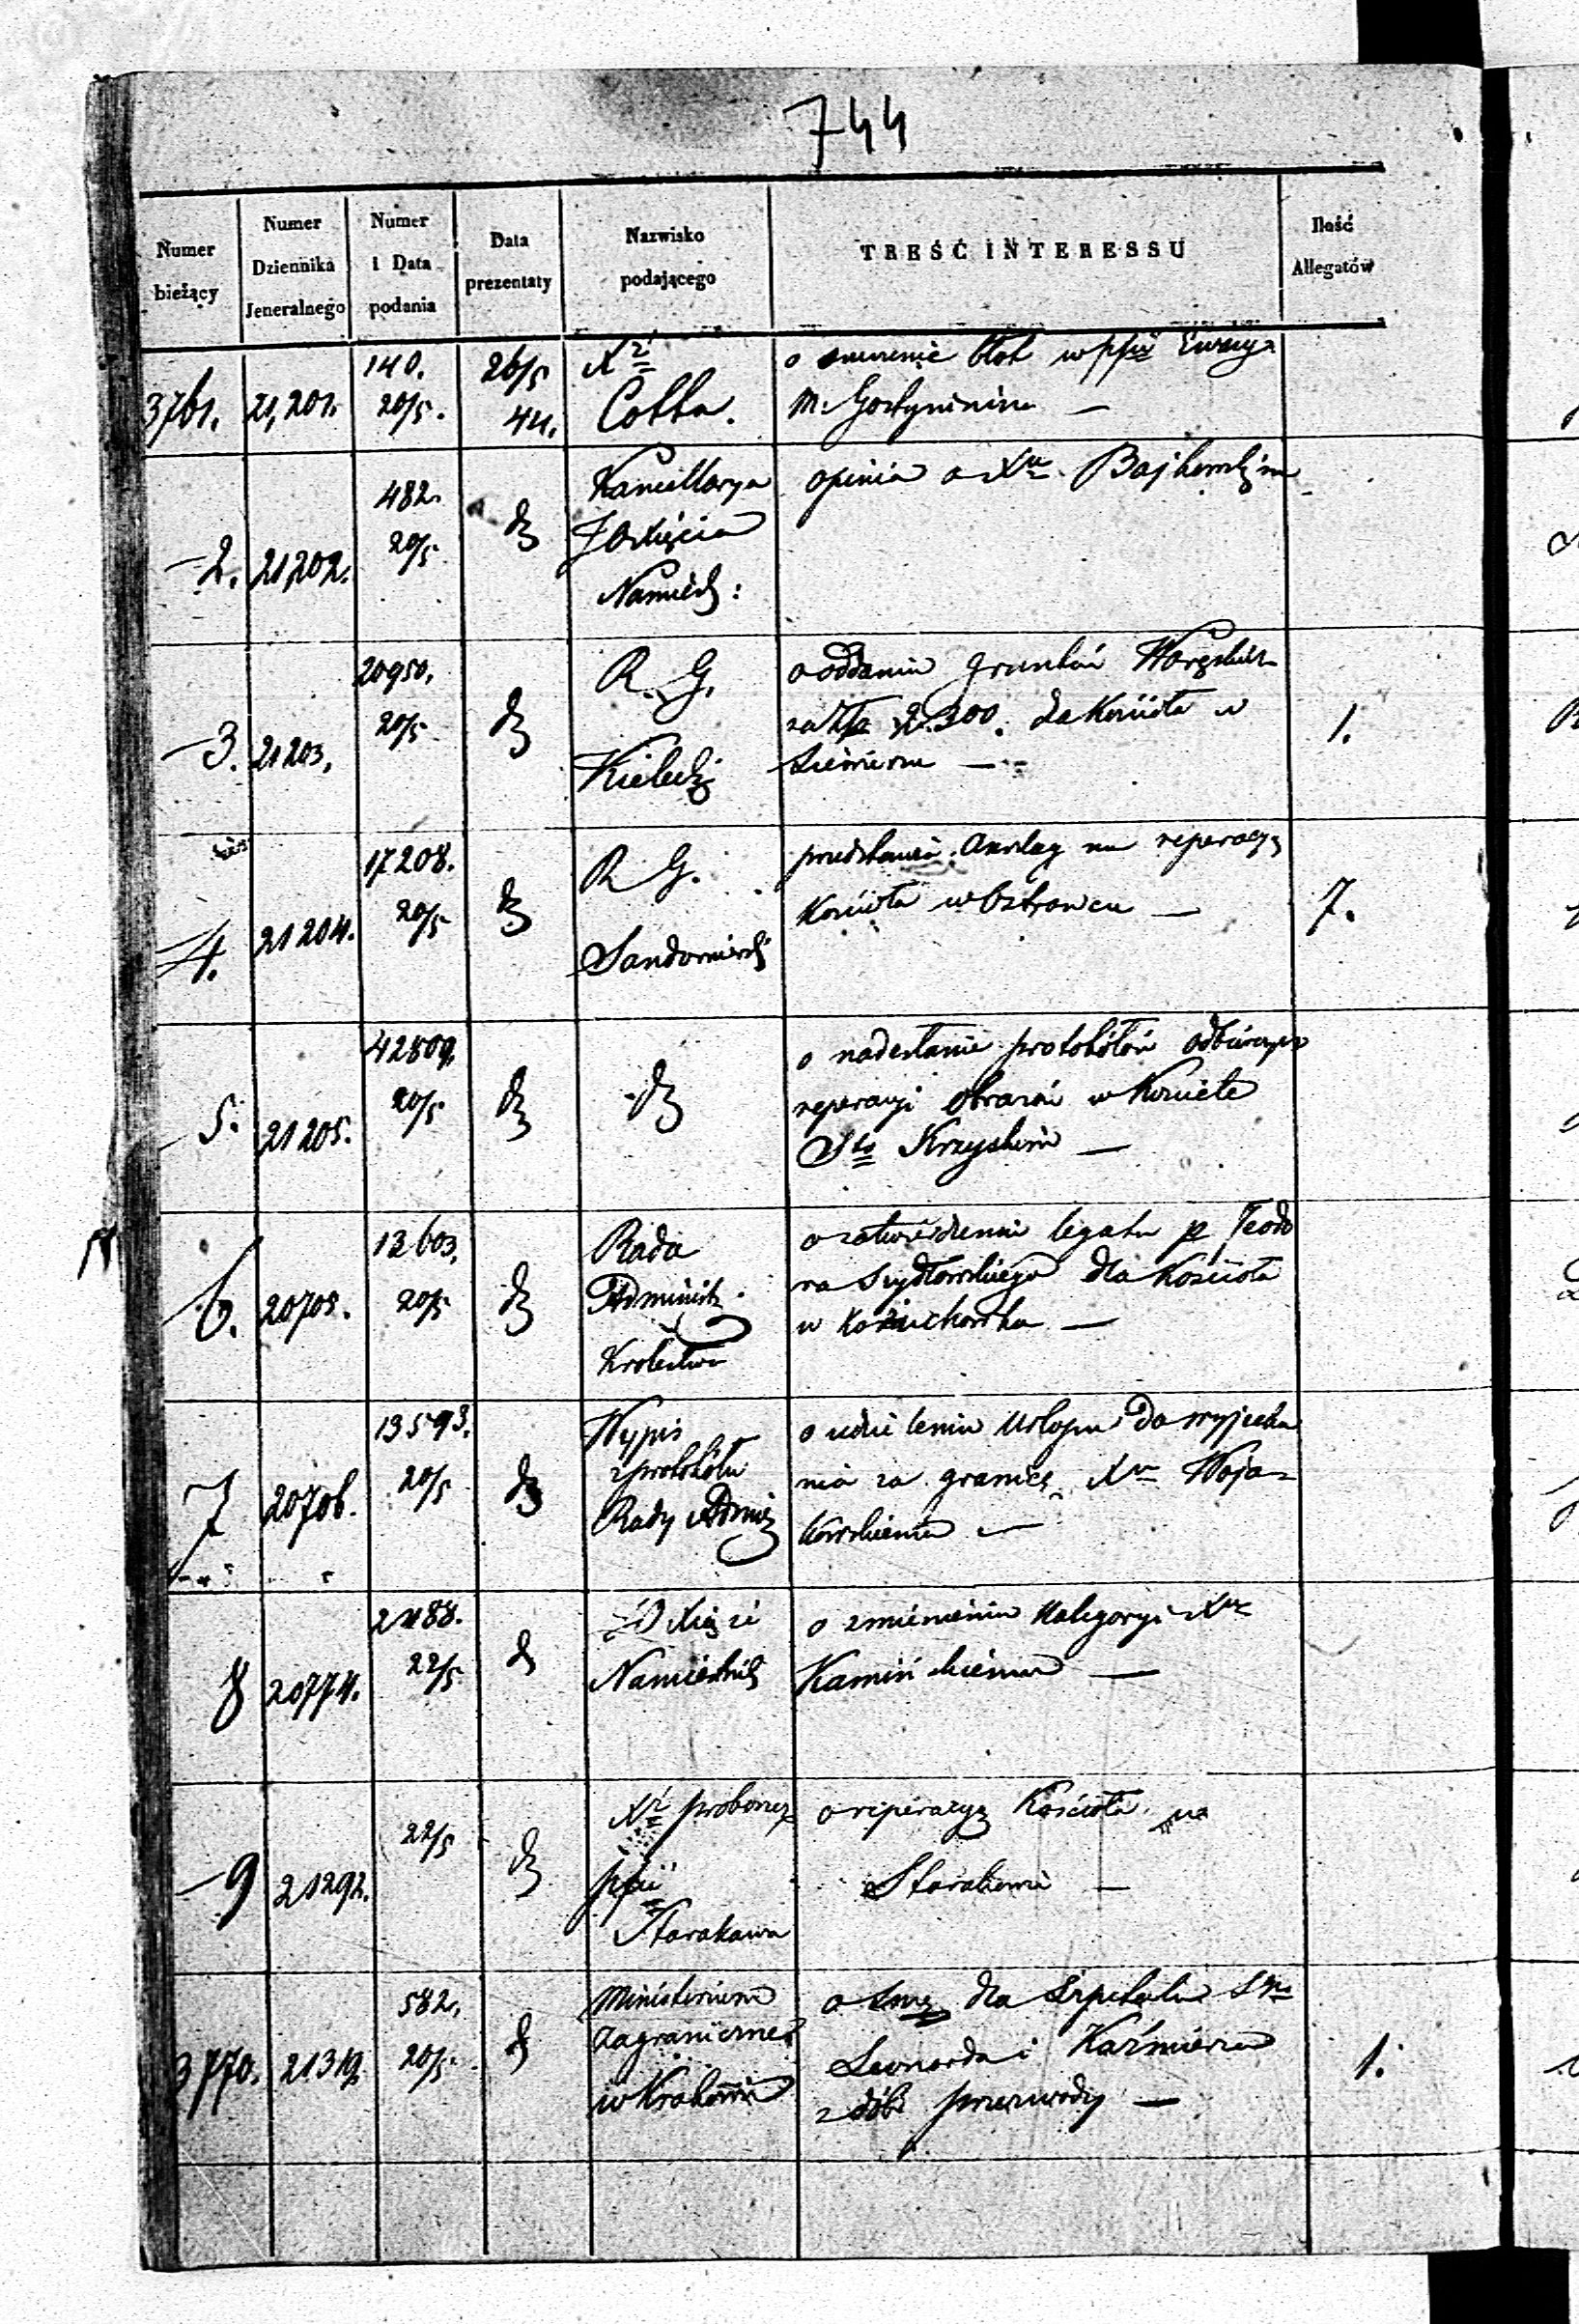 744
Numer bieżący | Numer Dziennika Jeneralnego | Numer i Data podania | Data prezentaty | Nazwisko podającego | TREŚĆ INTERESSU | Ilość Allegatów
3761. | 21,201. | 140. 20/5. | 26/5 44. | Xdz Cobba. | o
M: Gostyninim —
2. | 21202. | 482. 20/5 | dto | Kancellarya JO Xięcia Namiest: | opinia o Xu
3. | 21203. | 20950. 20/5 | dto | R. G. Kielecki | o oddaniu gruntów
za Złp 300. do Kościoła w | 1.
Siewierzu —
4. | 21204. | 17208. 20/5 | dto | R. G. Sandomirski | przedstawia Anszlag na reperacyą
Kościoła w Ostrowcu — | 7.
5. | 21205. | 42809. 20/5 | dto | dto | o nadesłanie protokółów odbiorczych
reperacyi obrazów w Kościele
Sto Krzyskim —
6. | 20705. | 13603. 20/5 | dto | Rada Administr. Królestwa | o zatwierdzeniu legatu p. Teodo
ra Szydłowskiego dla Kościoła
w Kożuchówku —
7 | 20706. | 13593. 20/5 | dto | Wypis z protokółu Rady Admin | o udzieleniu Urlopu do wyjecha
nia za granicę Xu Woja-
kowskiemu —
8 | 20774. | 2188. 22/5 | dto | JO Xiąże Namiestnik | o zmienieniu Kategoryi Xu
Kamińskiemu —
9 | 21292. | 22/5 | dto | Xdz proboszcz pfii | o reperacyą Kościoła w
—
3770. | 21319. | 582. 20/5. | dto | Ministerium zagraniczne w Krakowie | o dla Szpitala Sgo
Leonarda i Kaźmierza | 1.
z dóbr Przezwody —